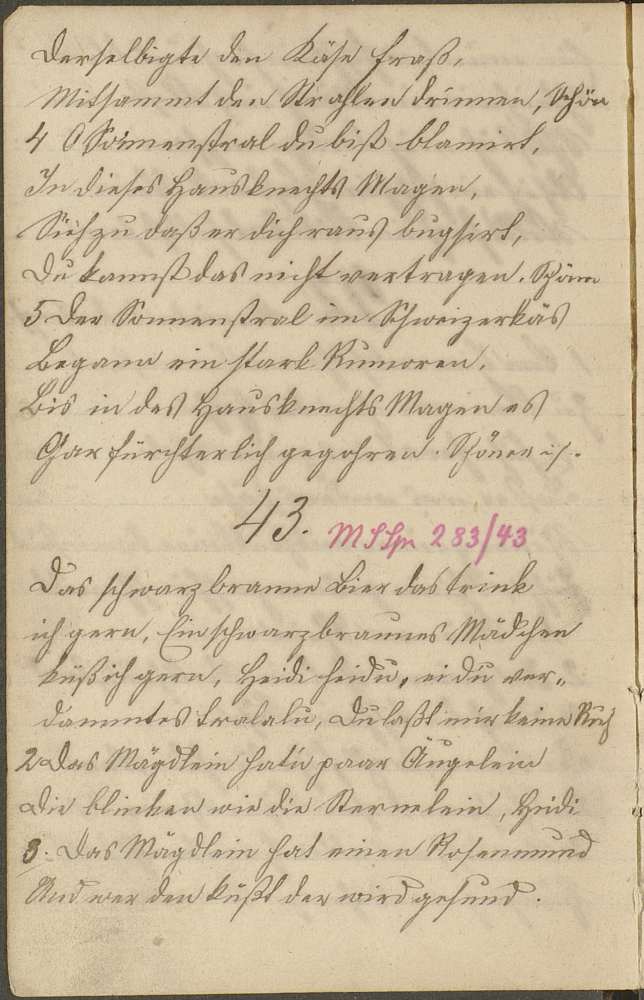 Derselbigte den Käse fraß,
Mitsammt den Strahlen drinnen, Schön
4 O Sonnenstral du bist blamirt,
In dieses Hausknechts Magen,
Sieh zu daß er dich raus bugsirt,
Du kannst das nicht vertragen. Schön
5 Der Sonnenstral im Schweizerkäs
Begann ein stark Rumoren,
Bis in des Hausknechts Magen es
Gar fürchterlich gegohren. Schöne is.
43. 283/43
Das schwarzbraune Bier das trink
ich gern, Ein schwarzbraunes Mädchen
küß ich gern, Heidi heidu, ei du ver„
dammtes tralalu, Du laßt mir keine Ruh
2 Das Mägdlein hat'n paar Äugelein
Die blinken wie die Sternelein, Heidi
3. Das Mägdlein hat einen Rosenmund
Und wer den küßt der wird gesund.